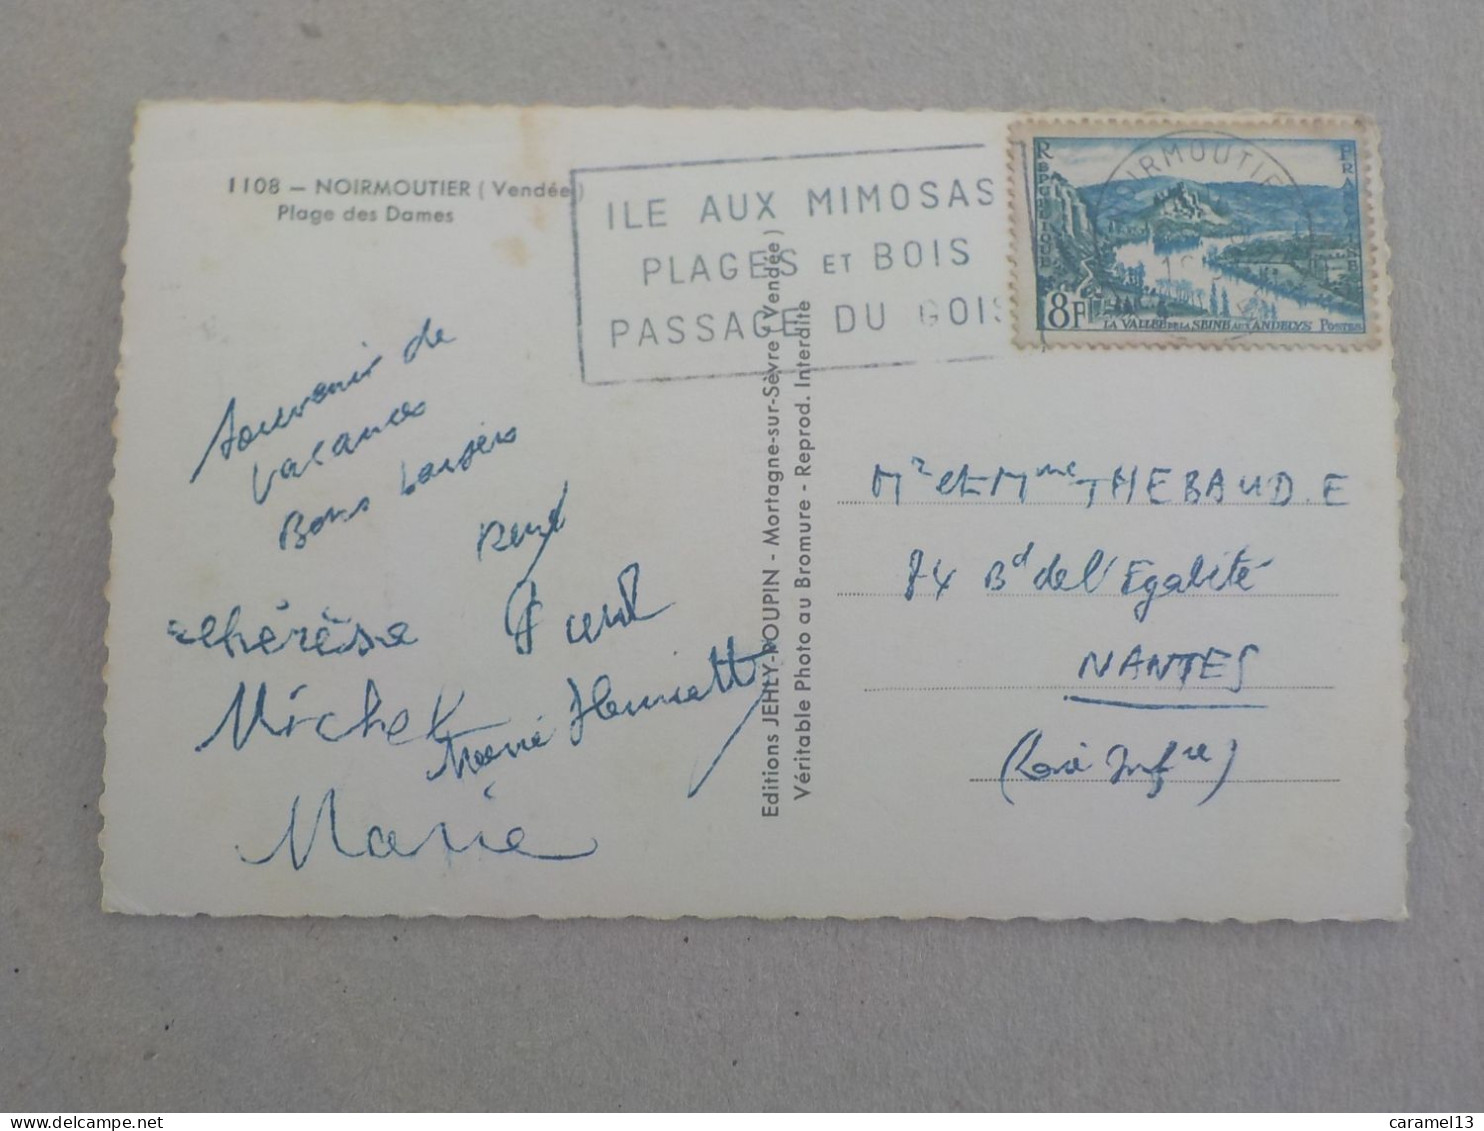 1108 – NOIRMOUTIER ( Vendée )
Plage des Dames
ILE AUX MIMOSAS
PLAGES ET BOIS
PASSAGE DU GOIS
NOIRMOUTIER
REPUBLIQUE
FRANCAISE
8F
LA VALLEE DE LA SEINE AUX ANDELYS POSTES
Souvenir de
vacances
Bons baisers
René
Thérèse
Michel
Marie Henriette
Marie
Editions JEHLY-POUPIN - Mortagne-sur-Sèvre ( Vendée )
Véritable Photo au Bromure - Reprod. Interdite
Mr et Mme THEBAUD. E
74 Bd de l'Egalité
NANTES
(Loire Infre)
caramel13